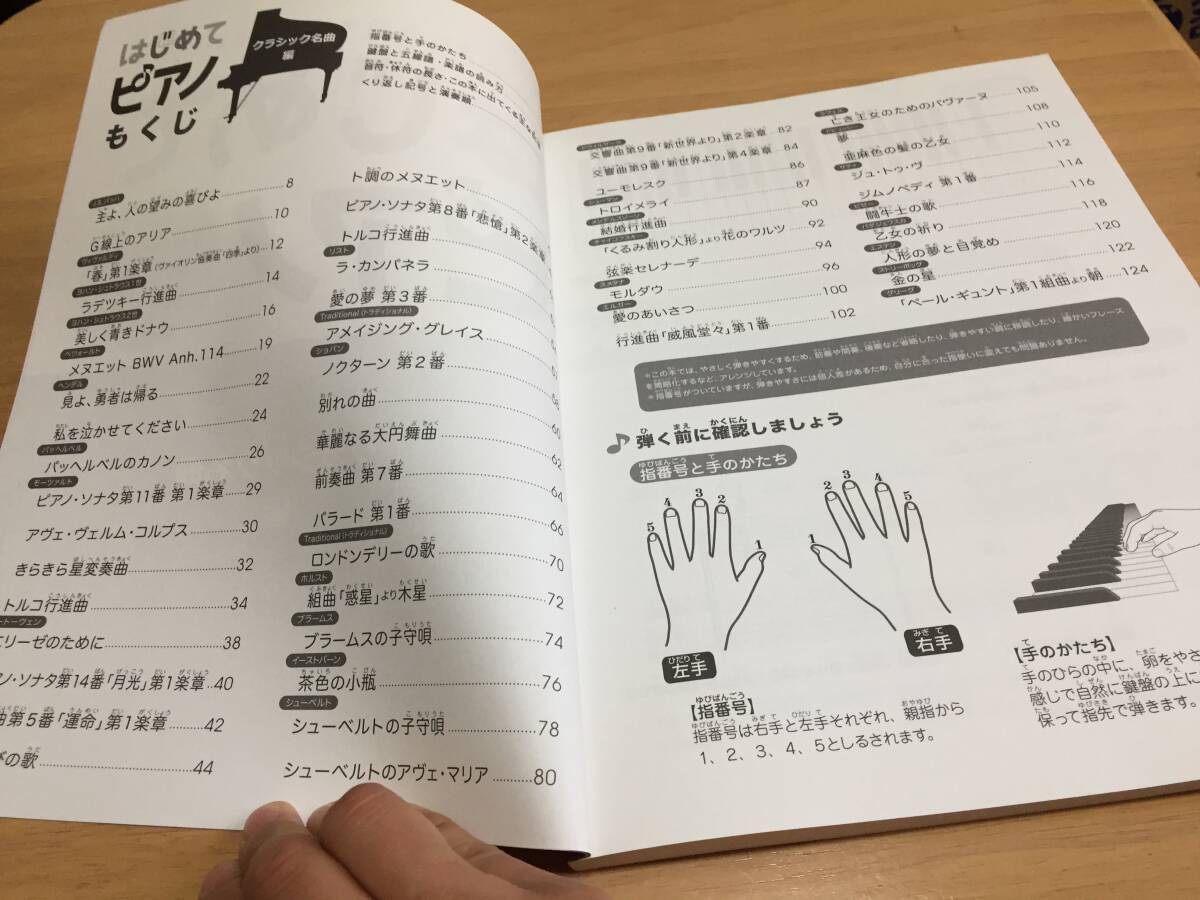 はじめて
ピアノ
もくじ
クラシック名曲
編
指番号と手のかたち
鍵盤と五線譜・楽譜の読み方
音符・休符の長さ・この本に出てくる
くり返し記号と演奏順
J.S.バッハ
主よ、人の望みの喜びよ 8
G線上のアリア 10
ヴィヴァルディ
「春」第1楽章(ヴァイオリン協奏曲「四季」より) 12
ヨハン・シュトラウス1世
ラデツキー行進曲 14
ヨハン・シュトラウス2世
美しく青きドナウ 16
ペツォールト
メヌエット BWV Anh.114 19
ヘンデル
見よ、勇者は帰る 22
私を泣かせてください 24
パッヘルベル
パッヘルベルのカノン 26
モーツァルト
ピアノ・ソナタ第11番 第1楽章 29
アヴェ・ヴェルム・コルプス 30
きらきら星変奏曲 32
トルコ行進曲 34
ートーヴェン
エリーゼのために 38
ン・ソナタ第14番「月光」第1楽章 40
曲第5番「運命」第1楽章 42
びの歌 44
ト調のメヌエット
ピアノ・ソナタ第8番「悲愴」第2楽章
トルコ行進曲
リスト
ラ・カンパネラ
愛の夢 第3番
Traditional(トラディショナル)
アメイジング・グレイス
ショパン
ノクターン 第2番
別れの曲 58
華麗なる大円舞曲 60
前奏曲 第7番 62
バラード 第1番 64
66
Traditional(トラディショナル)
ロンドンデリーの歌 70
ホルスト
組曲「惑星」より木星 72
ブラームス
ブラームスの子守唄 74
イーストバーン
茶色の小瓶 76
シューベルト
シューベルトの子守唄 78
シューベルトのアヴェ・マリア 80
ドヴォルザーク
交響曲第9番「新世界より」第2楽章 82
交響曲第9番「新世界より」第4楽章 84
ユーモレスク 86
シューマン
トロイメライ 87
メンデルスゾーン
結婚行進曲 90
チャイコフスキー
「くるみ割り人形」より花のワルツ 92
弦楽セレナーデ 94
スメタナ
モルダウ 96
エルガー
愛のあいさつ 100
行進曲「威風堂々」第1番 102
ラヴェル
亡き王女のためのパヴァーヌ 105
ドビュッシー
夢 108
亜麻色の髪の乙女 110
サティ
ジュ・トゥ・ヴ 112
ジムノペディ 第1番 114
ビゼー
闘牛士の歌 116
バダジェフスカ
乙女の祈り 118
エステン
人形の夢と目覚め 120
ストリーボッグ
金の星 122
グリーグ
「ペール・ギュント」第1組曲より朝 124
*この本では、やさしく弾きやすくするため、前奏や間奏、後奏など省略したり、弾きやすい調に移調したり、細かいフレーズ
を簡略化するなど、アレンジしています。
*指番号がついていますが、弾きやすさには個人差があるため、自分に合った指使いに変えても問題ありません。
弾く前に確認しましょう
指番号と手のかたち
5 4 3 2 1
1 2 3 4 5
左手
右手
【指番号】
指番号は右手と左手それぞれ、親指から
1、2、3、4、5としるされます。
【手のかたち】
手のひらの中に、卵をやさ
感じで自然に鍵盤の上に
保って指先で弾きます。